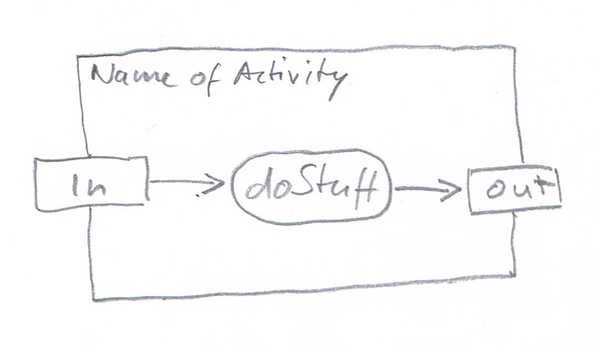 Name of Activity
In
doStuff
out